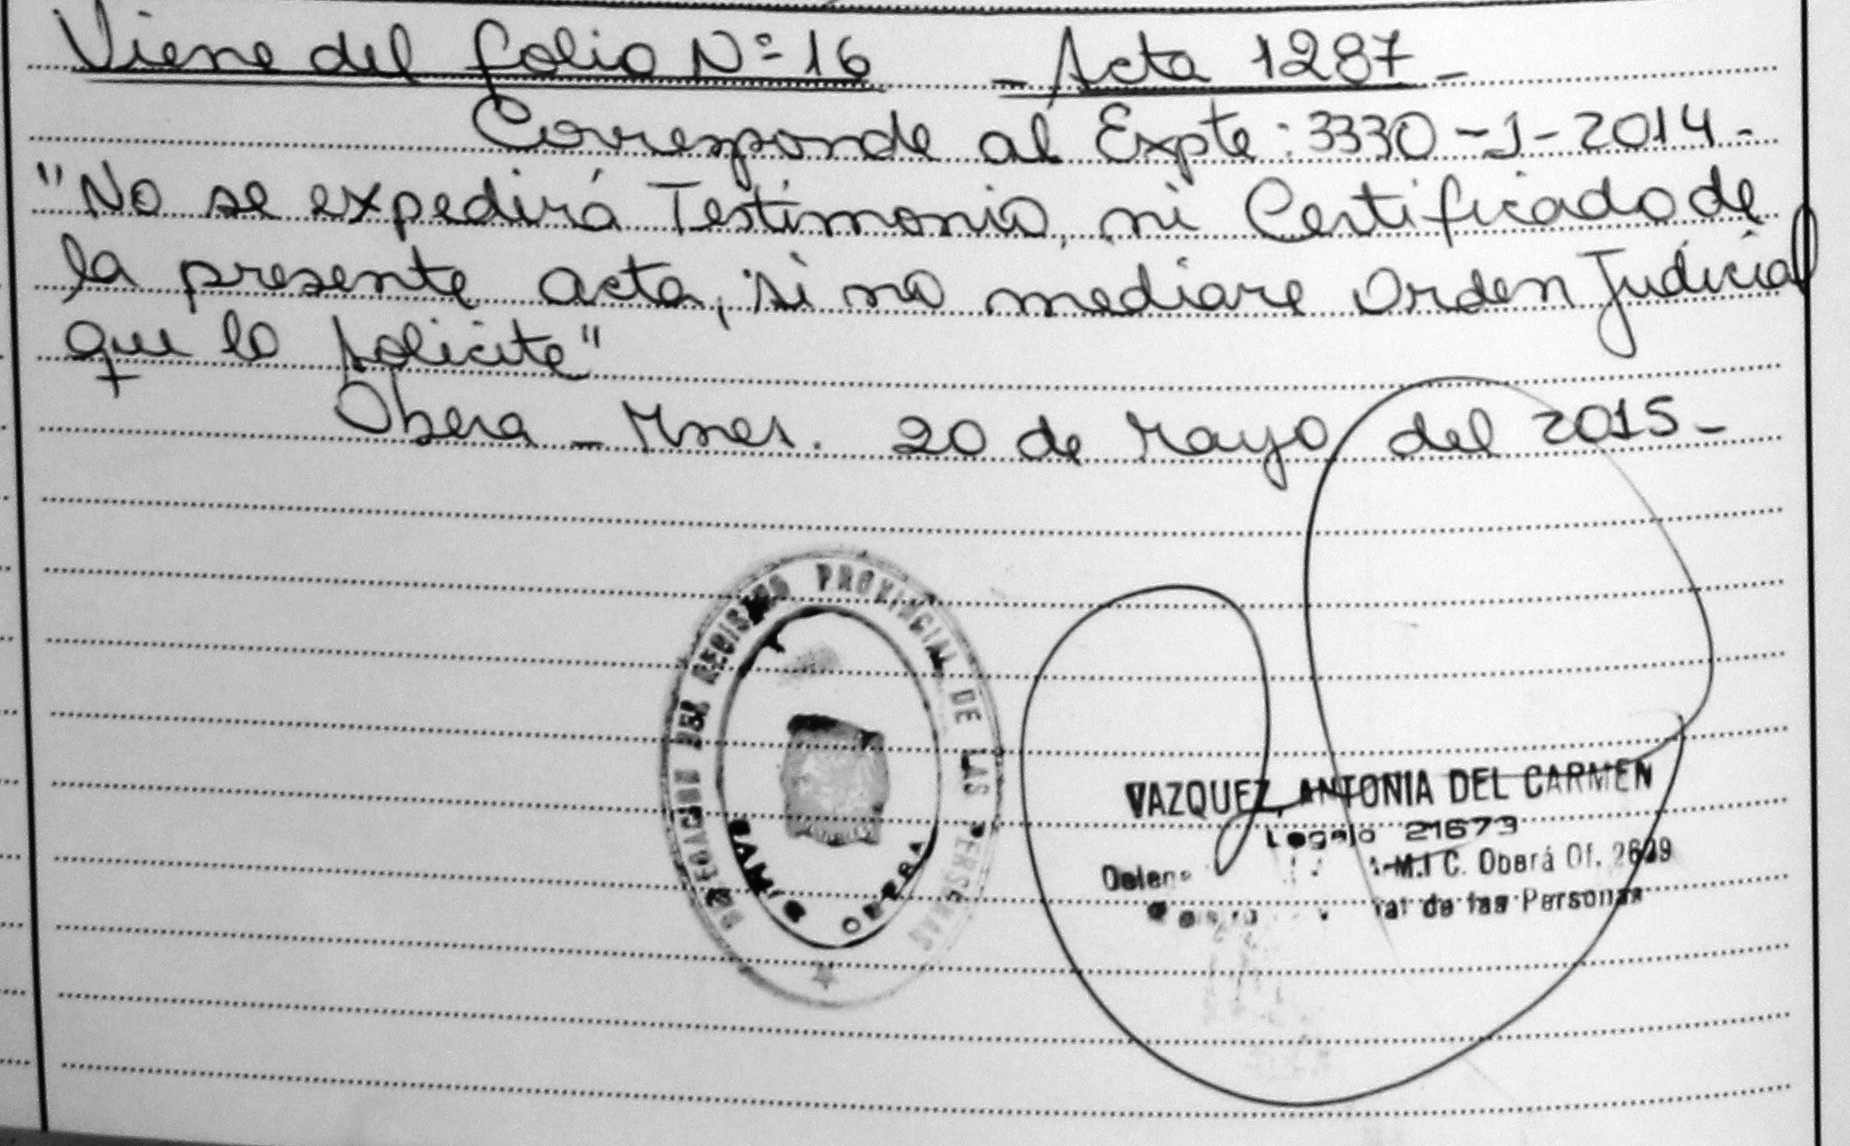 Viene del folio Nº 16 - Acta 1287 -
Corresponde al Expte: 3330-J-2014.-
"No se expedirá Testimonio, ni Certificado de
la presente acta, si no mediare Orden Judicial
que lo solicite"
Obera - Mnes. 20 de Mayo del 2015-
DELEGACION DEL REGISTRO PROVINCIAL DE LAS PERSONAS
OBERA
VAZQUEZ, ANTONIA DEL CARMEN
Legajo 21673
M.I C. Oberá Of. 2609
de las Personas